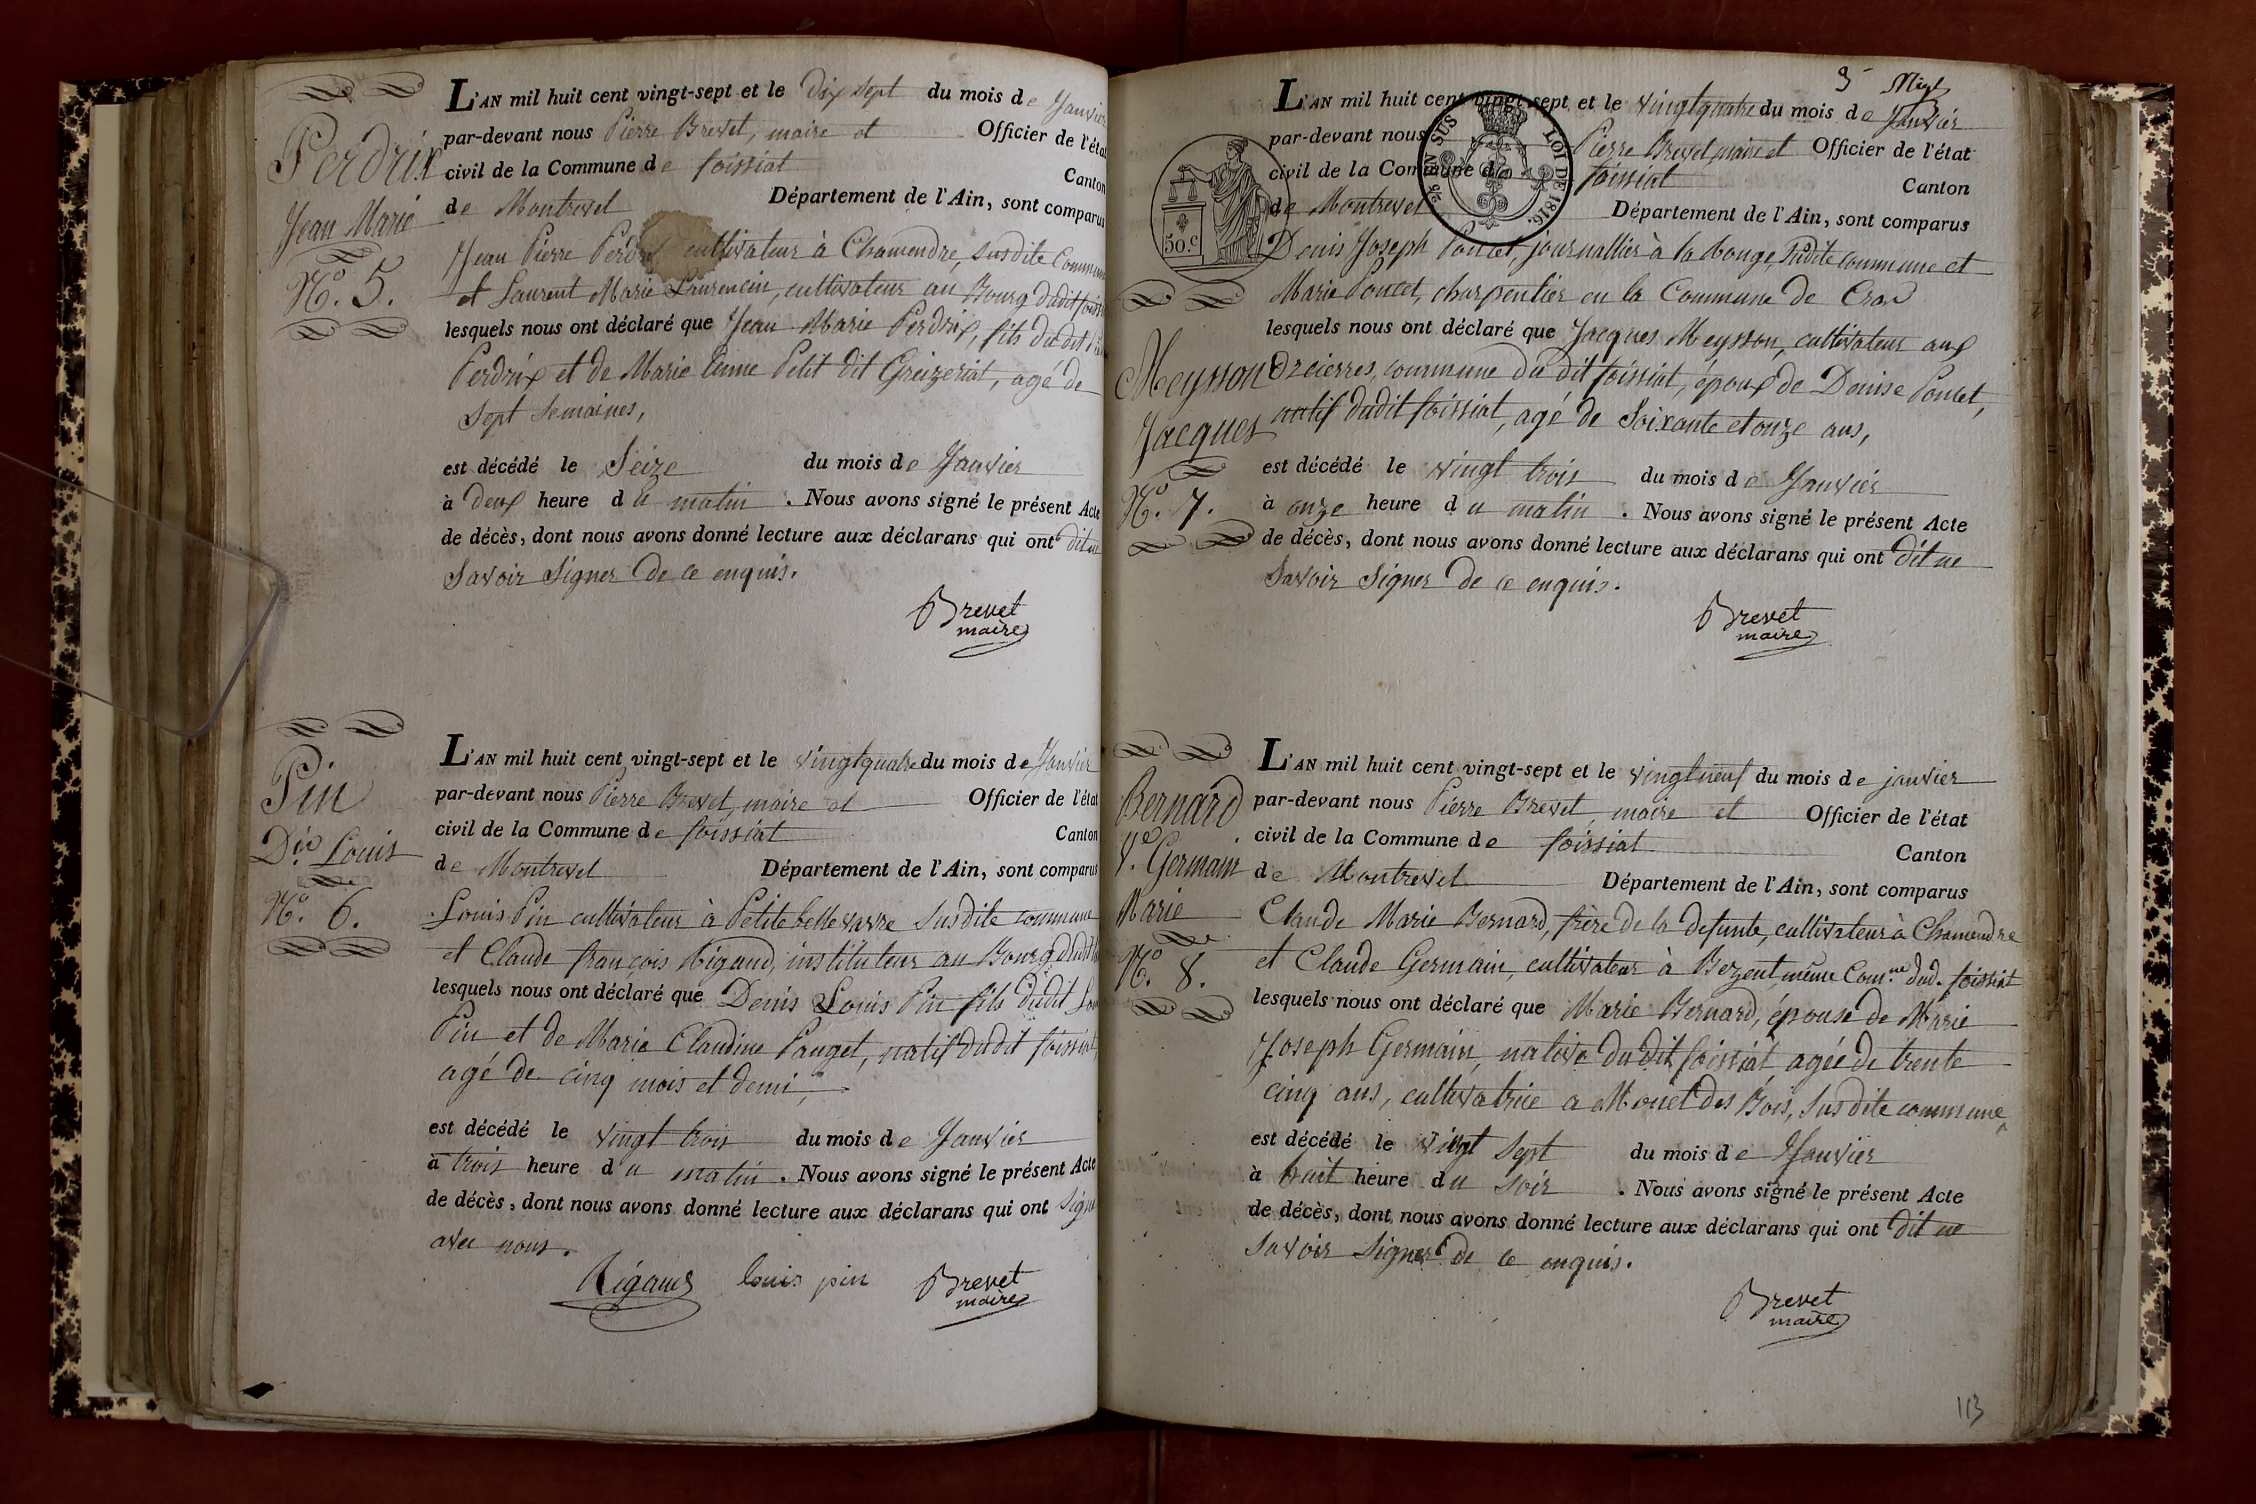 Perdrix
Jean Marie
N.º 5.
L'AN mil huit cent vingt-sept et le dix sept du mois de Janvier
par-devant nous Pierre Brevet, maire et Officier de l'état
civil de la Commune de foissiat Canton
de Montrevel Département de l'Ain, sont comparus
Jean Pierre Perdrix cultivateur à Chamendre, susdite commune
et Laurent Marie Laurencin, cultivateur au Bourg dudit foissiat
lesquels nous ont déclaré que Jean Marie Perdrix, fils du dit
Perdrix et de Marie Petit dit Greizeriat, agé de
sept semaines,
est décédé le Seize du mois de Janvier
à deux heure du matin. Nous avons signé le présent Acte
de décès, dont nous avons donné lecture aux déclarans qui ont dit ne
Savoir Signer de ce enquis.
Brevet
maire
Pin
Dis Louis
N.º 6.
L'AN mil huit cent vingt-sept et le vingtquatre du mois de Janvier
par-devant nous Pierre Brevet, maire et Officier de l'état
civil de la Commune de foissiat Canton
de Montrevel Département de l'Ain, sont comparus
Louis Pin cultivateur à Petite bellevavre susdite commune
et Claude françois Rigaud, instituteur au Bourg dudit
lesquels nous ont déclaré que Denis Louis Pin fils dudit
Pin et de Marie Claudine Pauget, natif dudit foissiat,
agé de cinq mois et demi,
est décédé le vingt trois du mois de Janvier
à trois heure du matin. Nous avons signé le présent Acte
de décès, dont nous avons donné lecture aux déclarans qui ont signé
avec nous.
Rigaud louis pin Brevet
maire
5
L'AN mil huit cent vingt-sept et le vingtquatre du mois de Janvier
par-devant nous Pierre Brevet maire et Officier de l'état
civil de la Commune de foissiat Canton
de Montrevel Département de l'Ain, sont comparus
EN SUS LOI DE 1816.
50.c
Denis Joseph Poncet, journallier à la bouge, sudite commune et
Marie Poncet, charpentier en la Commune de Cras
lesquels nous ont déclaré que Jacques Meysson, cultivateur aux
Orcierres, commune du dit foissiat, époux de Denise Poncet,
natif dudit foissiat, agé de Soixante et onze ans,
est décédé le vingt trois du mois de Janvier
à onze heure du matin. Nous avons signé le présent Acte
de décès, dont nous avons donné lecture aux déclarans qui ont dit ne
Savoir Signer de ce enquis.
Brevet
maire
Meysson
Jacques
N.º 7.
Bernard
Ve. Germain
Marie
N.º 8.
L'AN mil huit cent vingt-sept et le vingtneuf du mois de janvier
par-devant nous Pierre Brevet, maire et Officier de l'état
civil de la Commune de foissiat Canton
de Montrevel Département de l'Ain, sont comparus
Claude Marie Bernard, frère de la defunte, cultivateur à Chamendre
et Claude Germain, cultivateur à Bezent, même Com.ne dud. foissiat
lesquels nous ont déclaré que Marie Bernard, épouse de Marie
Joseph Germain, native du dit foissiat agée de trente
cinq ans, cultivatrice a Mouet des Bois, susdite commune
est décédé le vingt sept du mois de Janvier
à huit heure du soir. Nous avons signé le présent Acte
de décès, dont nous avons donné lecture aux déclarans qui ont dit ne
savoir signer de ce enquis.
Brevet
maire
113